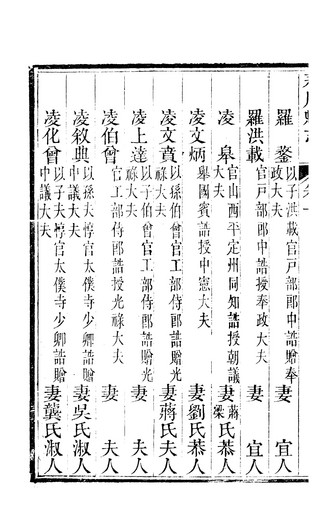 羅　鏊　以子洪載官戶部郎中誥贈奉政大夫　妻　宜人
羅洪載　官戶部郎中誥授奉政大夫　妻　宜人
凌　皋　官山西平定州同知誥授朝議大夫　妻蔣氏梁氏恭人
凌文炳　舉國賓誥授中憲大夫　妻劉氏恭人
凌文賁　以孫伯曾官工部侍郎誥贈光祿大夫　妻蔣氏夫人
凌上達　以子伯曾官工部侍郎誥贈光祿大夫　妻　夫人
凌伯曾　官工部侍郎誥授光祿大夫　妻　夫人
凌敘典　以孫夫惇官太僕寺少卿誥贈中議大夫　妻吳氏淑人
凌化曾　以子夫惇官太僕寺少卿誥贈中議大夫　妻龔氏淑人